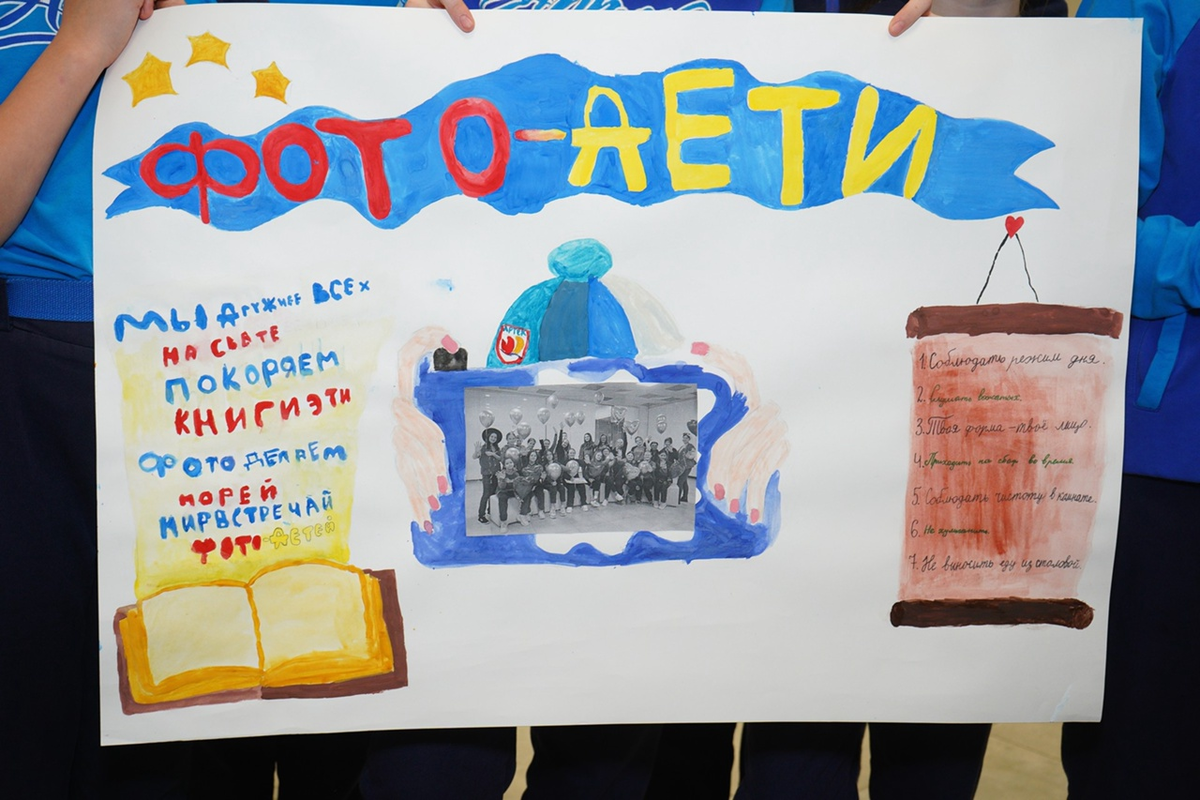 ФОТО-ДЕТИ
МЫ ДРУЖНЕЕ ВСЕХ
НА СВЕТЕ
ПОКОРЯЕМ
КНИГИ ЭТИ
ФОТО ДЕЛАЕМ
МОРЕЙ
МИР ВСТРЕЧАЙ
ФОТО-ДЕТЕЙ
АРТЕК
1. Соблюдать режим дня.
2. Слушать вожатых.
3. Твоя форма – твоё лицо.
4. Приходить на сбор во время.
5. Соблюдать чистоту в комнате.
6. Не
7. Не выносить еду из столовой.